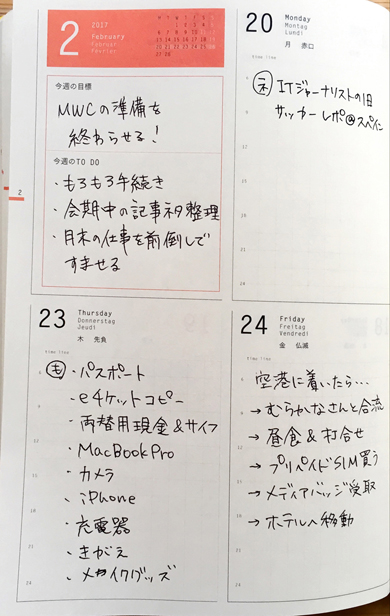 2
2017
February
Februar
Février
今週の目標
MWCの準備を
終わらせる!
今週のTO DO
・もろもろ手続き
・会期中の記事ネタ整理
・月末の仕事を前倒しで
すませる
2
20
Monday
Montag
Lundi
月 赤口
time line
ネ ITジャーナリストの1日
サッカーレポ@スペイン
23
Thursday
Donnerstag
Jeudi
木 先負
time line
も ・パスポート
・e4ケットコピー
・両替用現金&サイフ
・MacBook Pro
・カメラ
・iPhone
・充電器
・きがえ
・メイクグッズ
24
Friday
Freitag
Vendredi
金 仏滅
time line
空港に着いたら…
→むらかなさんと合流
→昼食&打合せ
→プリペイドSIM買う
→メディアバッジ受取
→ホテルへ移動